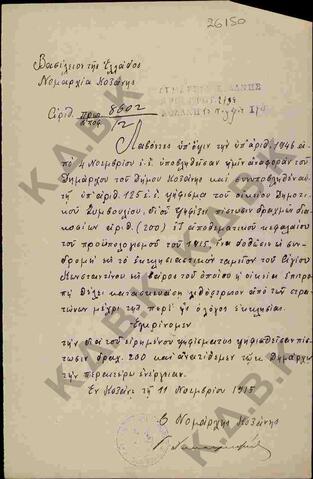 26150
Βασίλειον της Ελλάδος
Νομαρχία Κοζάνης
Αριθ. πρωτ. 8602
διεκπ.
12
Λαβόντες υπ' όψιν την υπ' αριθ. 1946 από
4 Νοεμβρίου ε.έ. υποβληθείσαν ημίν αναφοράν του
Δημάρχου του Δήμου Κοζάνης και συνυποβληθέν αυτή
υπ' αριθ. 125 ε.έ. ψήφισμα του οικείου Δημοτι-
κού Συμβουλίου, δι' ου ψηφίζει πίστωσιν δραχμών δια-
κοσίων αριθ. (200) εξ αποθεματικού κεφαλαίου
του προϋπολογισμού του 1915, ίνα δοθώσιν ως συν-
δρομή εις το εκκλησιαστικόν ταμείον του Αγίου
Κωνσταντίνου εις βάρος του οποίου η οικεία Επιτρο-
πή θέλει κατασκευάση λιθόστρωτον από των στρα-
τώνων μέχρι της περί ης ο λόγος εκκλησίας.
Εγκρίνομεν
την δια του ειρημένου ψηφίσματος ψηφισθείσαν πί-
στωσιν δραχ. 200 και ανατίθεμεν τω κ. Δημάρχω
την περαιτέρω ενέργειαν.
Εν Κοζάνη τη 11 Νοεμβρίου 1915
Ο Νομάρχης Κοζάνης
Κ.Δ.Β.Κ